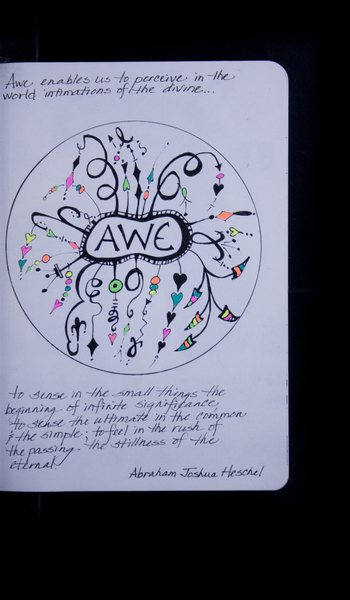 Awe enables us to perceive in the
world intimations of the divine...
AWE
to sense in the small things the
beginning of infinite significance;
to sense the ultimate in the common
& the simple; to feel in the rush of
the passing the stillness of the
eternal.
Abraham Joshua Heschel